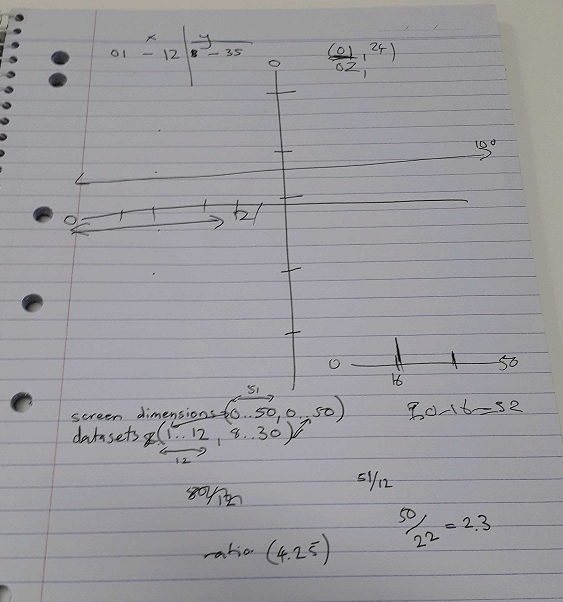 x y
01 - 12 8 - 35
(01, 24)
02,
0
100
0
12
0 16 50
51
screen dimensions (0..50, 0..50)
datasets (1..12, 8..30)
12
80-16=52
51/12
50/22 = 2.3
ratio (4.25)